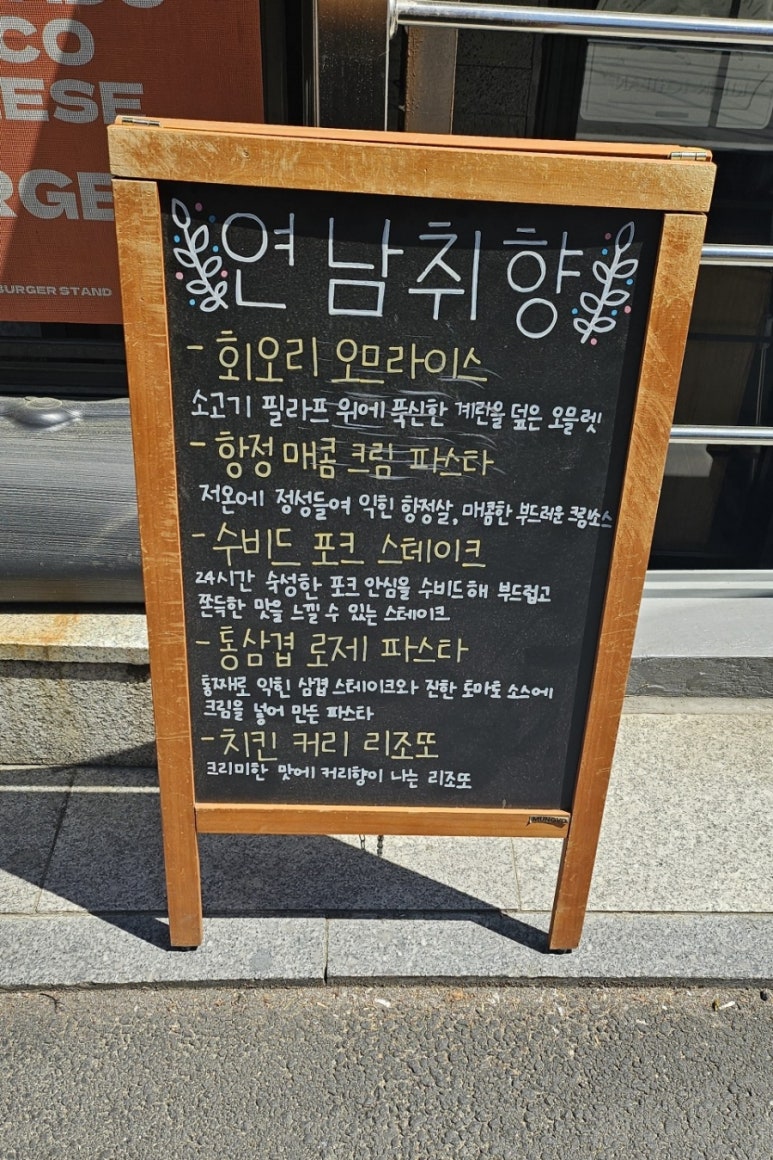 CO
ESE
RGE
BURGER STAND
연남취향
- 회오리 오므라이스
소고기 필라프 위에 푹신한 계란을 덮은 오믈렛
- 항정 매콤 크림 파스타
저온에 정성들여 익힌 항정살, 매콤한 부드러운 크림소스
- 수비드 포크 스테이크
24시간 숙성한 포크 안심을 수비드해 부드럽고
쫀득한 맛을 느낄 수 있는 스테이크
- 통삼겹 로제 파스타
통째로 익힌 삼겹 스테이크와 진한 토마토 소스에
크림을 넣어 만든 파스타
- 치킨 커리 리조또
크리미한 맛에 커리향이 나는 리조또
MUNGYO